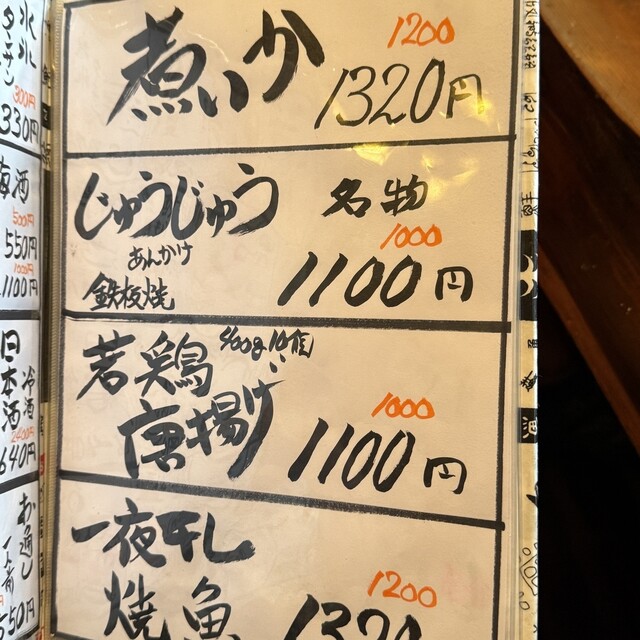 煮いか
1200
1320円
じゅうじゅう
名物
あんかけ
鉄板焼
1000
1100円
若鶏
400g 10個
唐揚げ
1000
1100円
一夜干し
焼魚
1200
1320
300円
330円
梅酒
500円
550円
1000円
1100円
日本酒
冷酒
2400円
640円
お通し
550円